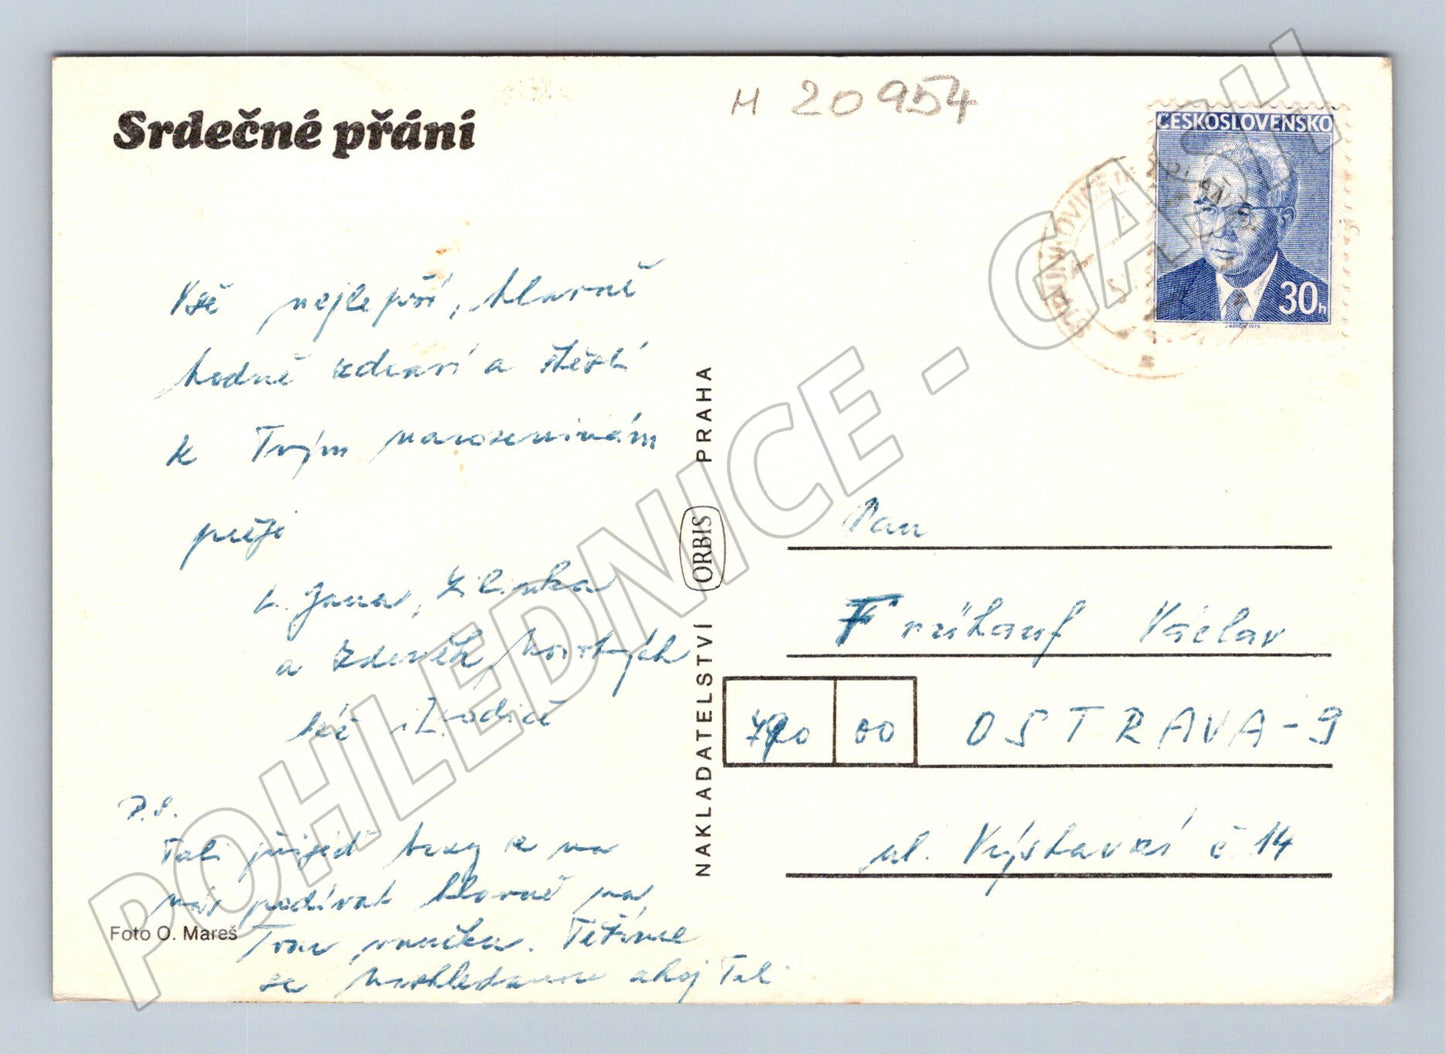 Srdečné přání
H 20954
ČESKOSLOVENSKO
30h
Vše nejlepší, hlavně
hodně zdraví a štěstí
k Tvým narozeninám
přeje
Jana,
a Zdeněk
též
P.S.
Tati přijeď brzy se na
nás podívat hlavně na
Tvou vnučku. Těšíme
se Nashledanou ahoj Tati
Foto O. Mareš
NAKLADATELSTVÍ ORBIS PRAHA
Pan
Frühauf Václav
790 00 OSTRAVA-9
ul. Výstavní č 14
POHLEDNICE - GASH